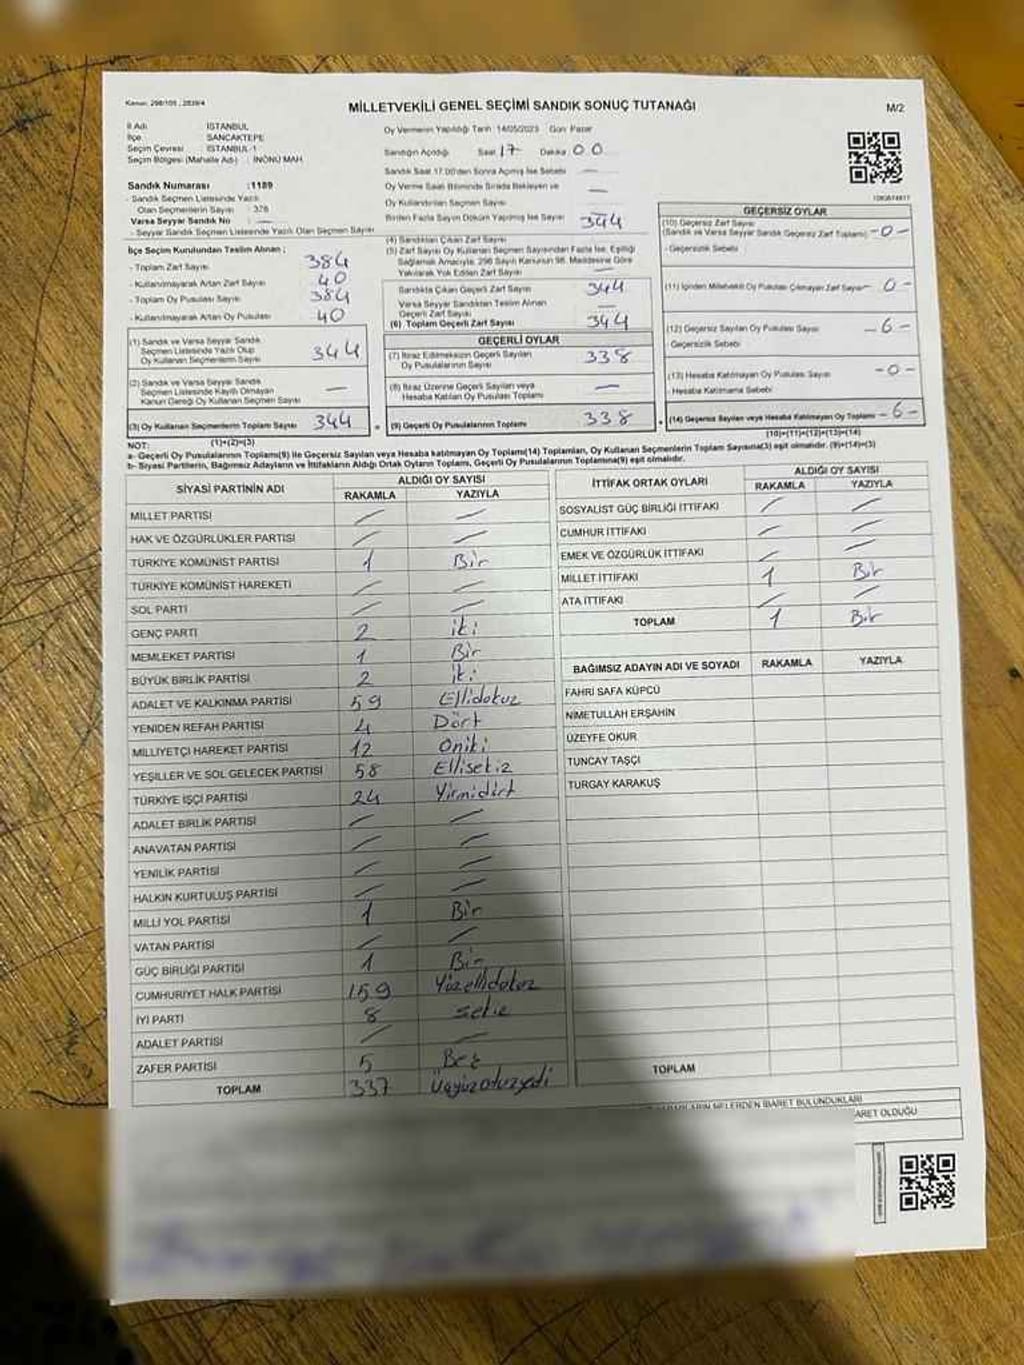 Kanun: 298/105 , 2839/4
MİLLETVEKİLİ GENEL SEÇİMİ SANDIK SONUÇ TUTANAĞI
M/2
İl Adı : İSTANBUL
İlçe : SANCAKTEPE
Seçim Çevresi : İSTANBUL-1
Seçim Bölgesi (Mahalle Adı) : İNÖNÜ MAH.
Oy Vermenin Yapıldığı Tarih: 14/05/2023 Gün: Pazar
Sandığın Açıldığı Saat 17 Dakika 00
Sandık Saat 17.00'den Sonra Açılmış İse Sebebi —
Oy Verme Saati Bitiminde Sırada Bekleyen ve
Oy Kullandırılan Seçmen Sayısı —
Birden Fazla Sayım Döküm Yapılmış İse Sayısı
Sandık Numarası :1189
- Sandık Seçmen Listesinde Yazılı
Olan Seçmenlerin Sayısı : 376
Varsa Seyyar Sandık No : —
- Seyyar Sandık Seçmen Listesinde Yazılı Olan Seçmen Sayısı
İlçe Seçim Kurulundan Teslim Alınan ;
- Toplam Zarf Sayısı 384
- Kullanılmayarak Artan Zarf Sayısı 40
- Toplam Oy Pusulası Sayısı 384
- Kullanılmayarak Artan Oy Pusulası 40
(1) Sandık ve Varsa Seyyar Sandık
Seçmen Listesinde Yazılı Olup
Oy Kullanan Seçmenlerin Sayısı 344
(2) Sandık ve Varsa Seyyar Sandık
Seçmen Listesinde Kayıtlı Olmayan
Kanun Gereği Oy Kullanan Seçmen Sayısı —
(3) Oy Kullanan Seçmenlerin Toplam Sayısı 344
(1)+(2)=(3)
(4) Sandıktan Çıkan Zarf Sayısı 344
(5) Zarf Sayısı Oy Kullanan Seçmen Sayısından Fazla İse, Eşitliği
Sağlamak Amacıyla, 298 Sayılı Kanunun 98. Maddesine Göre
Yakılarak Yok Edilen Zarf Sayısı —
Sandıkta Çıkan Geçerli Zarf Sayısı 344
Varsa Seyyar Sandıktan Teslim Alınan
Geçerli Zarf Sayısı —
(6) Toplam Geçerli Zarf Sayısı 344
GEÇERLİ OYLAR
(7) İtiraz Edilmeksizin Geçerli Sayılan
Oy Pusulalarının Sayısı 338
(8) İtiraz Üzerine Geçerli Sayılan veya
Hesaba Katılan Oy Pusulası Toplamı —
(9) Geçerli Oy Pusulalarının Toplamı 338
GEÇERSİZ OYLAR
(10) Geçersiz Zarf Sayısı
(Sandık ve Varsa Seyyar Sandık Geçersiz Zarf Toplamı) -0-
- Geçersizlik Sebebi
(11) İçinden Milletvekili Oy Pusulası Çıkmayan Zarf Sayısı - 0 -
(12) Geçersiz Sayılan Oy Pusulası Sayısı -6-
- Geçersizlik Sebebi
(13) Hesaba Katılmayan Oy Pusulası Sayısı -0-
- Hesaba Katılmama Sebebi
(14) Geçersiz Sayılan veya Hesaba Katılmayan Oy Toplamı -6-
(10)+(11)+(12)+(13)=(14)
NOT:
a- Geçerli Oy Pusulalarının Toplamı(9) ile Geçersiz Sayılan veya Hesaba katılmayan Oy Toplamı(14) Toplamları, Oy Kullanan Seçmenlerin Toplam Sayısına(3) eşit olmalıdır. (9)+(14)=(3)
b- Siyasi Partilerin, Bağımsız Adayların ve İttifakların Aldığı Ortak Oyların Toplamı, Geçerli Oy Pusulalarının Toplamına(9) eşit olmalıdır.
SİYASİ PARTİNİN ADI
ALDIĞI OY SAYISI
RAKAMLA YAZIYLA
MİLLET PARTİSİ
HAK VE ÖZGÜRLÜKLER PARTİSİ
TÜRKİYE KOMÜNİST PARTİSİ 1 Bir
TÜRKİYE KOMÜNİST HAREKETİ
SOL PARTİ
GENÇ PARTİ 2 iki
MEMLEKET PARTİSİ 1 Bir
BÜYÜK BİRLİK PARTİSİ 2 iki
ADALET VE KALKINMA PARTİSİ 59 Ellidokuz
YENİDEN REFAH PARTİSİ 4 Dört
MİLLİYETÇİ HAREKET PARTİSİ 12 Oniki
YEŞİLLER VE SOL GELECEK PARTİSİ 58 Ellisekiz
TÜRKİYE İŞÇİ PARTİSİ 24 Yirmidört
ADALET BİRLİK PARTİSİ
ANAVATAN PARTİSİ
YENİLİK PARTİSİ
HALKIN KURTULUŞ PARTİSİ
MİLLİ YOL PARTİSİ 1 Bir
VATAN PARTİSİ
GÜÇ BİRLİĞİ PARTİSİ 1 Bir
CUMHURİYET HALK PARTİSİ 159 Yüzellidokuz
İYİ PARTİ 8 sekiz
ADALET PARTİSİ
ZAFER PARTİSİ 5 Beş
TOPLAM 337 Üçyüzotuzyedi
İTTİFAK ORTAK OYLARI
ALDIĞI OY SAYISI
RAKAMLA YAZIYLA
SOSYALİST GÜÇ BİRLİĞİ İTTİFAKI
CUMHUR İTTİFAKI
EMEK VE ÖZGÜRLÜK İTTİFAKI
MİLLET İTTİFAKI 1 Bir
ATA İTTİFAKI
TOPLAM 1 Bir
BAĞIMSIZ ADAYIN ADI VE SOYADI RAKAMLA YAZIYLA
FAHRİ SAFA KÜPCÜ
NİMETULLAH ERŞAHİN
ÜZEYFE OKUR
TUNCAY TAŞÇI
TURGAY KARAKUŞ
TOPLAM
NELERDEN İBARET BULUNDUKLARI
OLDUĞU